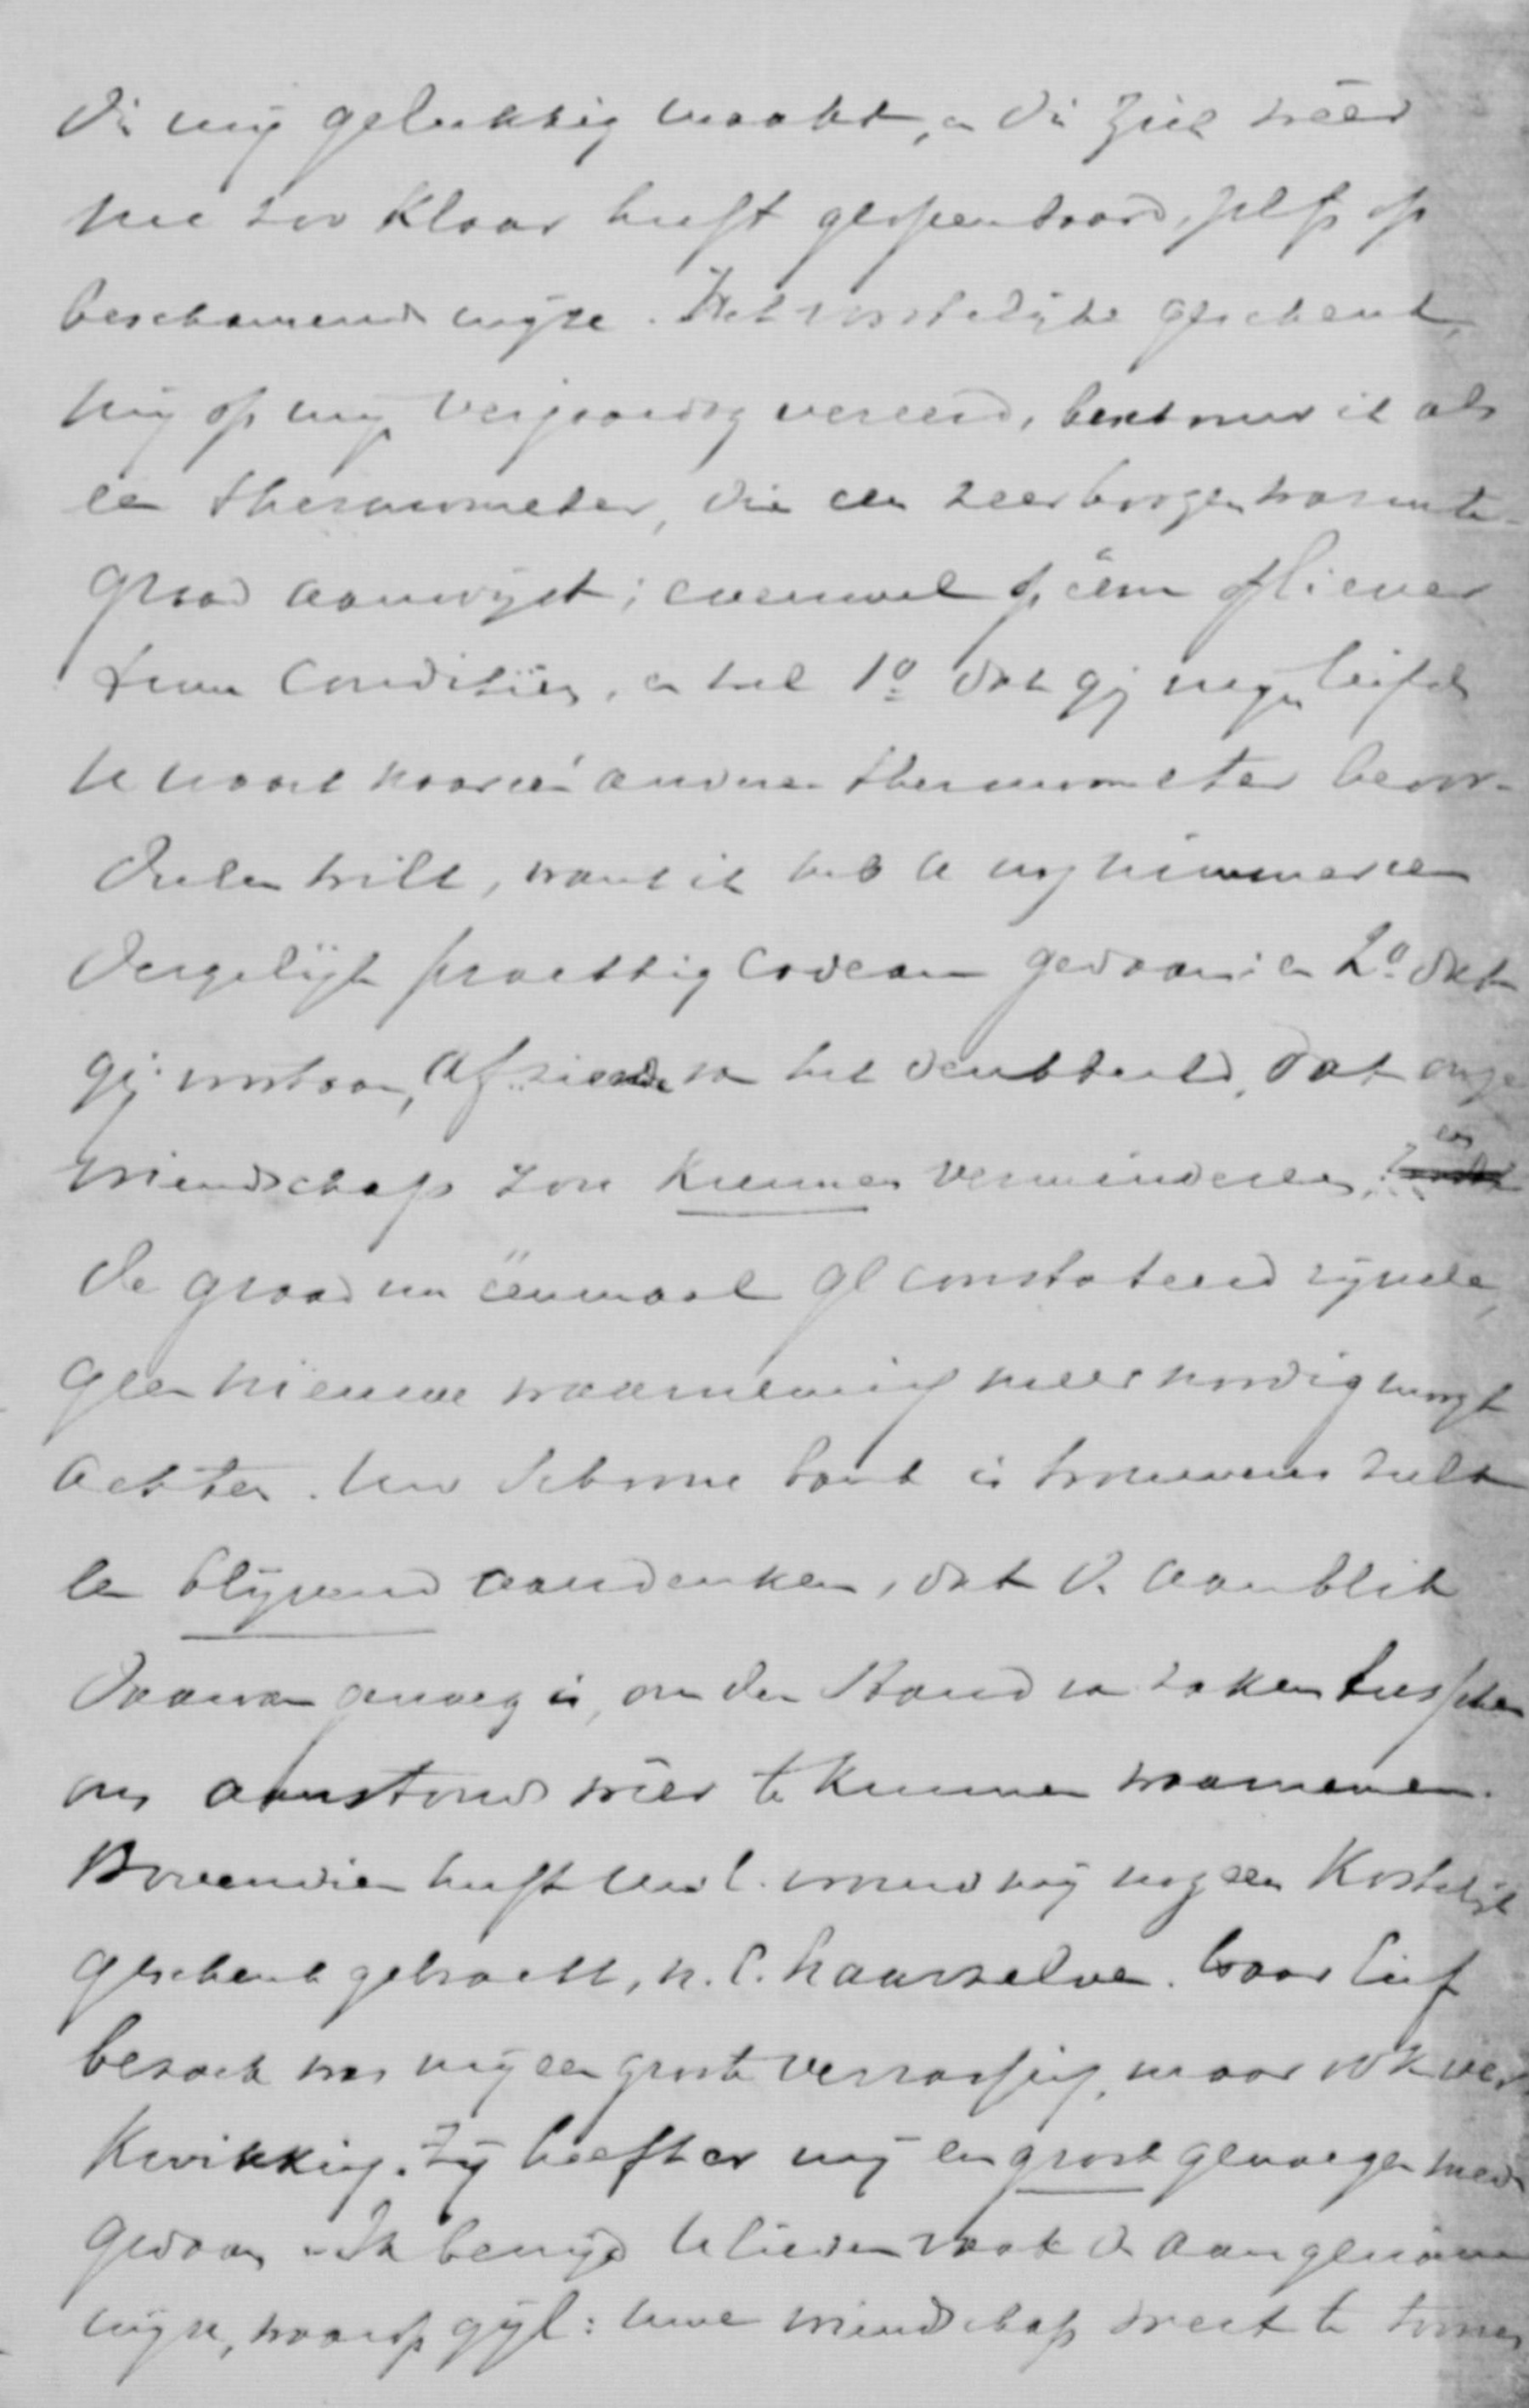 die mij gelukkig maakt, en die zich weer
nu zoo klaar heeft geopenbaard, zelfs op
beschamende wijze. Het vorstelijke geschenk,
mij op mijn verjaardag vereerd, beschouw ik als
een thermometer, die een zeer hoogen warmte-
graad aanwijst; evenwel op één of liever
twee conditiën, en wel 1o dat gij mijn liefde
te uwaart naar een anderen thermometer beoor-
deelen wilt, want ik heb U nog nimmer een
dergelijk prachtig cadeau gedaan; en 2o dat
gij voortaan, afziende van het denkbeeld, dat onze
vriendschap zou kunnen verminderen, en
de graad nu eenmaal geconstateerd zijnde,
geen nieuwe waarneming meer noodig moogt
achten. Uw schoone is trouwens zulk
een blijvend aandenken, dat de aanblik
daarvan genoeg is, om den stand van zaken tusschen
ons aanstonds weer te kunnen waarnemen.
Bovendien heeft uwe vrouw mij nog een kostelijk
geschenk gebracht, n.l. haarzelve. Haar lief
bezoek was mij een groote verrassing, maar ook ver-
kwikking. Zij heeft er mij een groot genoegen mede
gedaan. Ik benijd Ulieden vaak de aangename
wijze, waarop gijl: uwe vriendschap weet te toonen